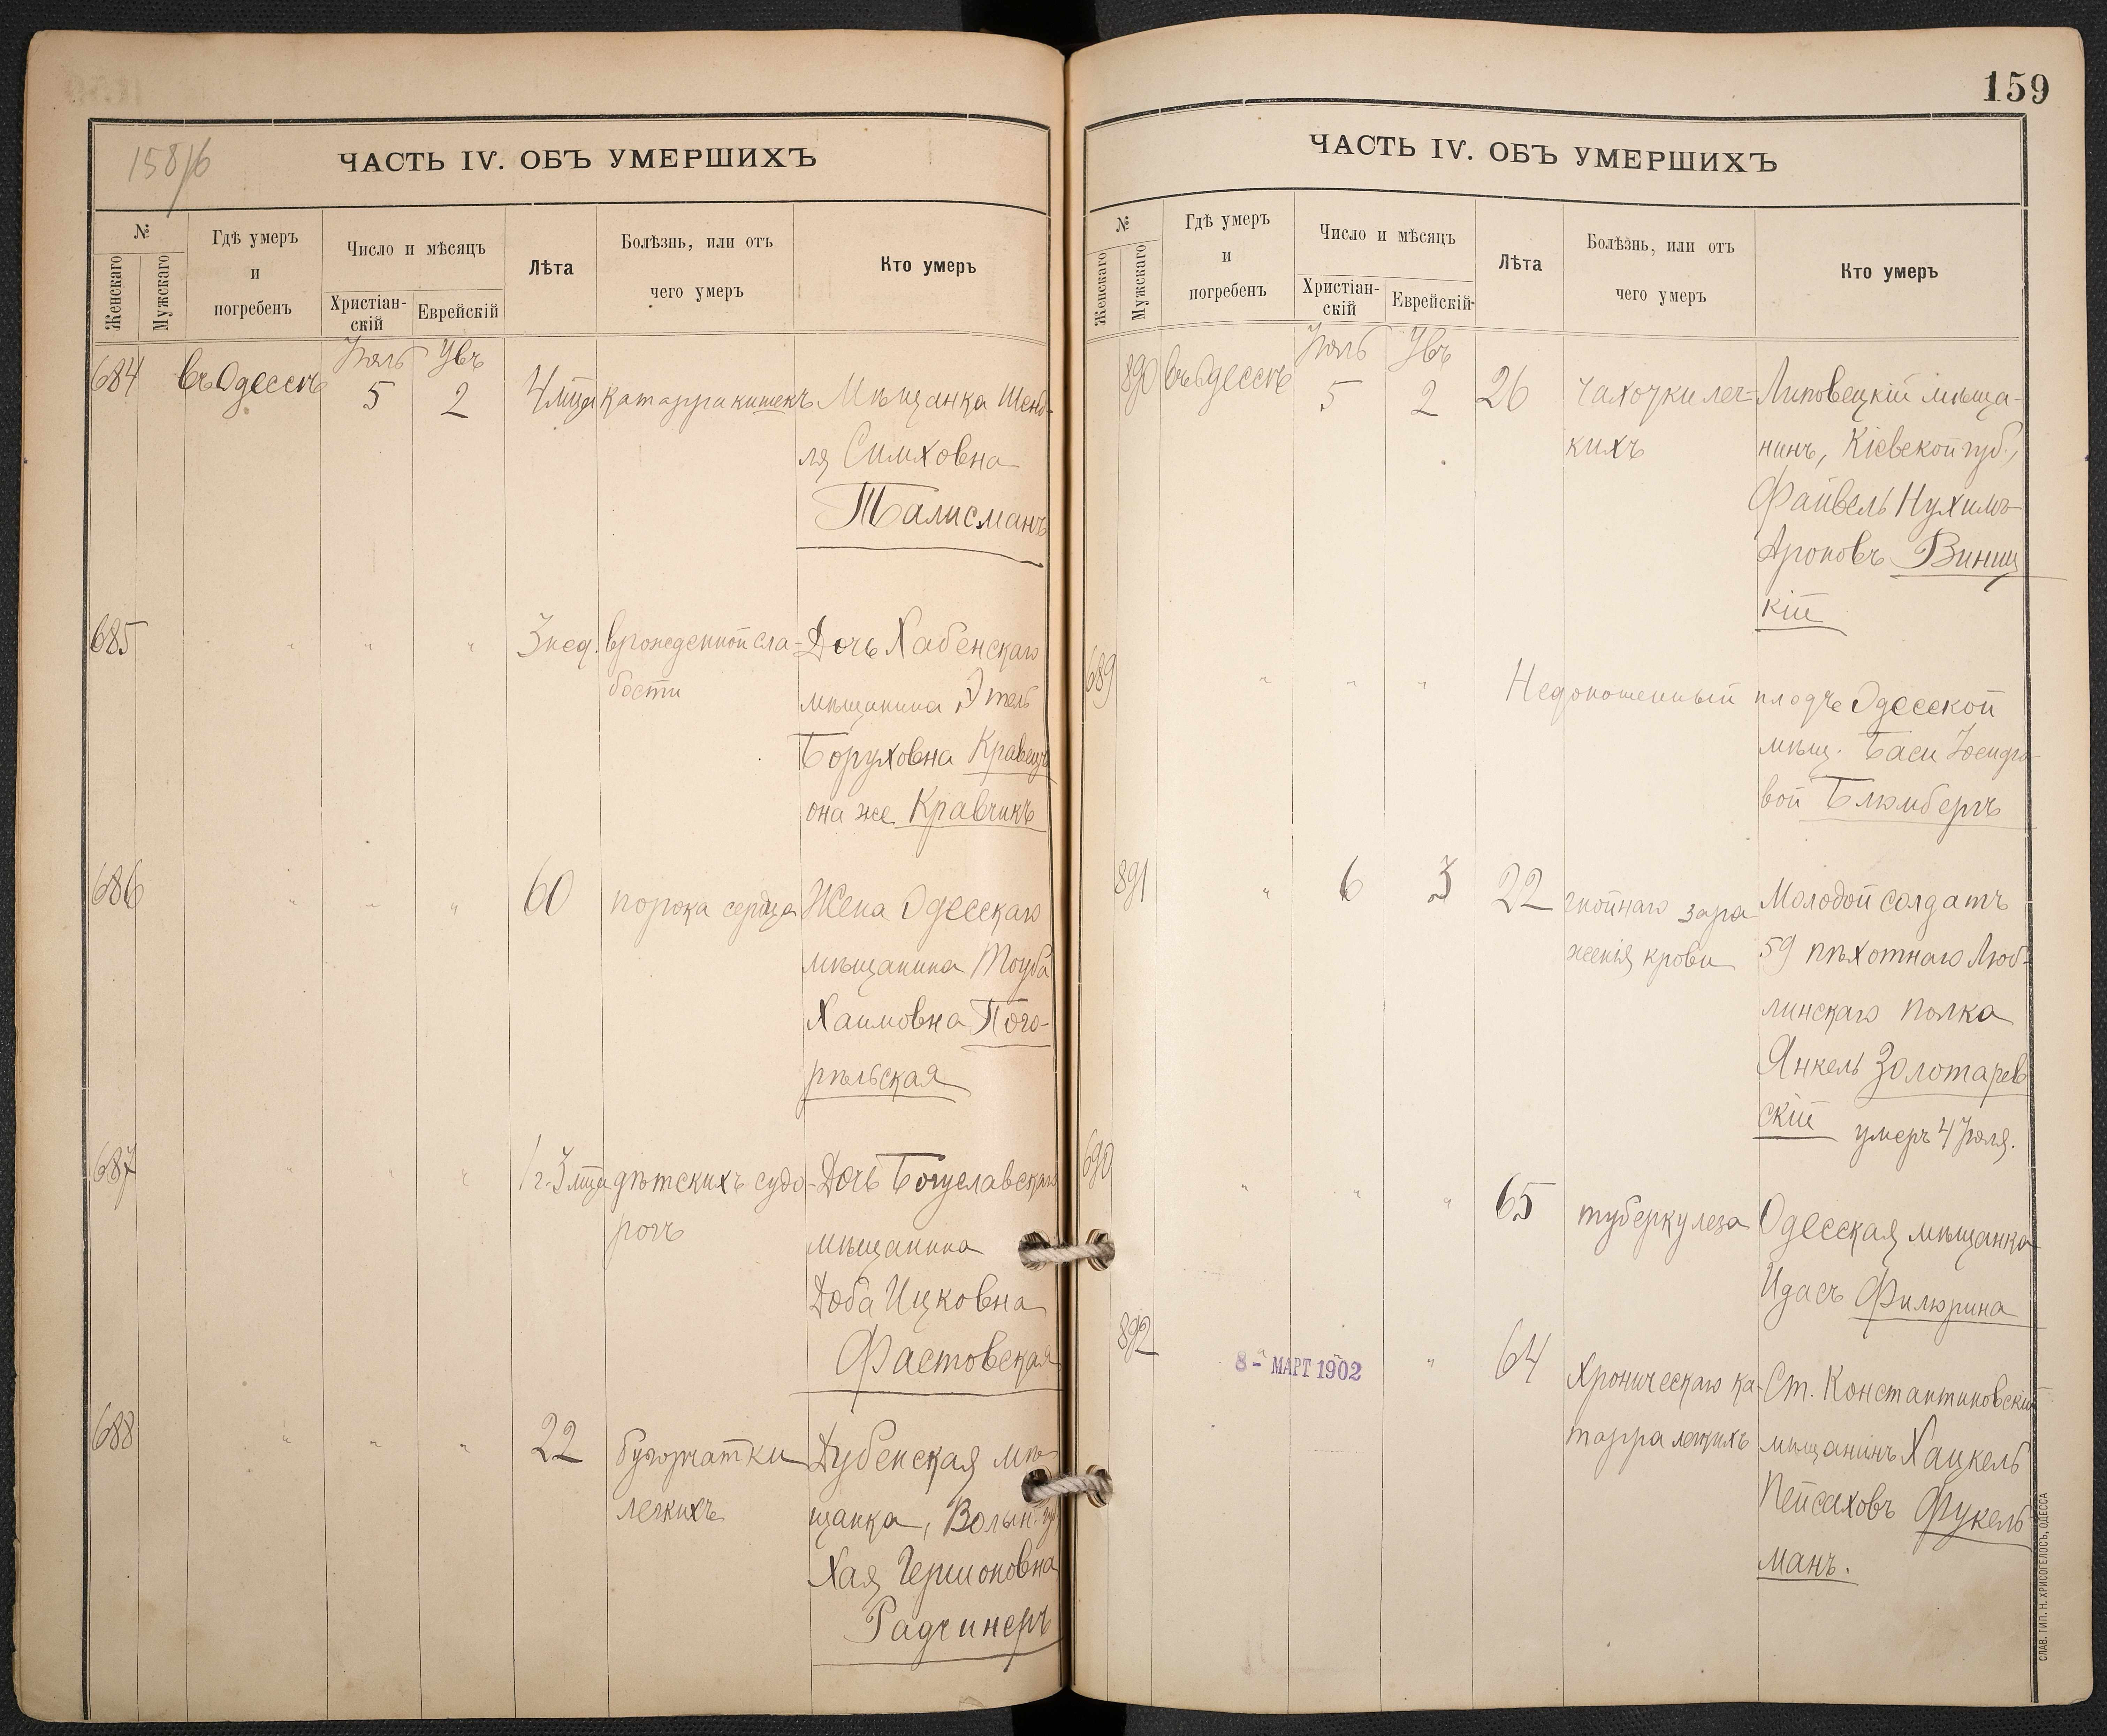 158/6
ЧАСТЬ IV. ОБЪ УМЕРШИХЪ
№
Женскаго
Мужскаго
Гдѣ умеръ
и
погребенъ
Число и мѣсяцъ
Христіан-
скій
Еврейскій
Лѣта
Болѣзнь, или отъ
чего умеръ
Кто умеръ
Іюль Увъ
684 въ Одессѣ 5 2 4 мца катарра кишекъ Мѣщанка Шенд-
ля Симховна
Талисманъ
685 " " " 3 нед. врожденной сла- Дочь Хабенскаго
бости мѣщанина Этель
Боруховна Кравецъ
она же Кравчикъ
686 " " " 60 порока сердца Жена Одесскаго
мѣщанина Тоуба
Хаимовна Пого-
рѣльская
687 " " " 1 г. 3 мца дѣтскихъ судо- Дочь Богуславскаго
рогъ мѣщанина
Доба Ицковна
Фастовская
688 " " " 22 бугорчатки Дубенская мѣ-
легкихъ щанка, Волын. губ.
Хая Гершоновна
Радчинеръ
159
ЧАСТЬ IV. ОБЪ УМЕРШИХЪ
№
Женскаго
Мужскаго
Гдѣ умеръ
и
погребенъ
Число и мѣсяцъ
Христіан-
скій
Еврейскій
Лѣта
Болѣзнь, или отъ
чего умеръ
Кто умеръ
Іюль Увъ
890 въ Одессѣ 5 2 26 чахотки лег- Липовецкій мѣща-
кихъ нинъ, Кіевской губ.,
Файвель Нухимъ-
Ароновъ Виниц
кій
689 " " " Недоношенный плодъ Одесской
мѣщ. Баси
вой Блюмбергъ
891 " 6 3 22 гнойнаго зара Молодой солдатъ
женія крови 59 пѣхотнаго Люб-
линскаго полка
Янкель Золотарев
скій умеръ 4 Іюля.
690 " " " 65 туберкулеза Одесская мѣщанка
Идасъ Филюрина
892 " " " 64 Хроническаго ка- Ст. Константиновскій
тарра легкихъ мѣщанинъ Хацкель
Пейсаховъ Фукель-
манъ.
8- МАРТ 1902
СЛАВ. ТИП. Н. ХРИСОГЕЛОСЪ, ОДЕССА